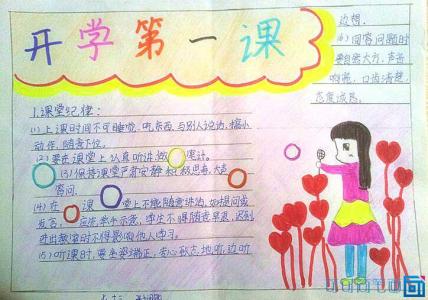 开学第一课
1.课堂纪律:
(1)上课时间不可睡觉、吃东西、与别人说话、搞小
动作、随意下位。
(2)要在课堂上认真听讲,做笔记。
(3)保持课堂严肃安静,积极思考,大声
答问。
(4)在课堂上不能随意讲话,如提问或
发言,应先举手示意,学生不得随意早退,迟到
进出教室时不得影响他人学习。
(5)听课时,要坐姿端正,专心致志地听,边听
边想。
(6)回答问题时
要自然大方,声音
响亮,口齿清楚,
态度诚恳。